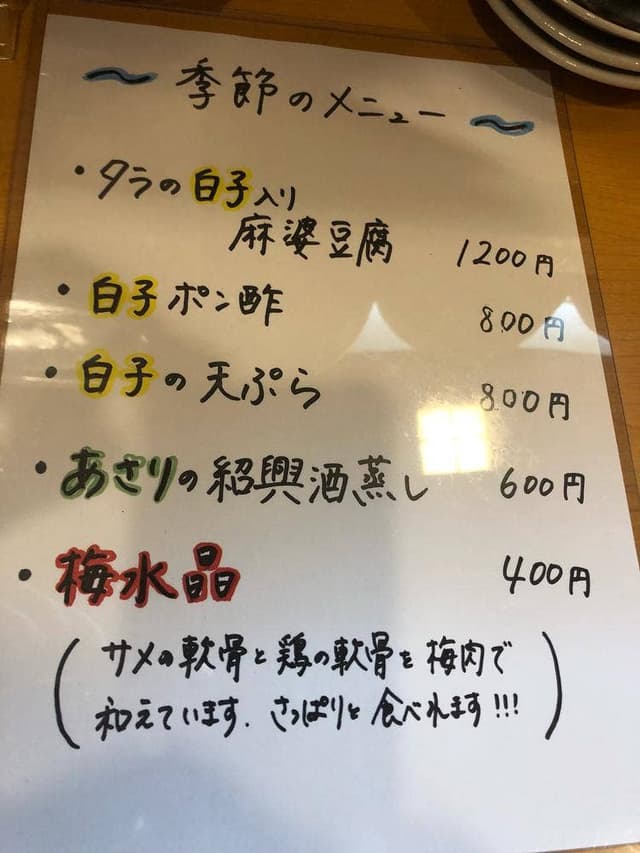 〜季節のメニュー〜
・タラの白子入り
麻婆豆腐 1200円
・白子ポン酢 800円
・白子の天ぷら 800円
・あさりの紹興酒蒸し 600円
・梅水晶 400円
(サメの軟骨と鶏の軟骨を梅肉で
和えています. さっぱりと食べれます!!!)